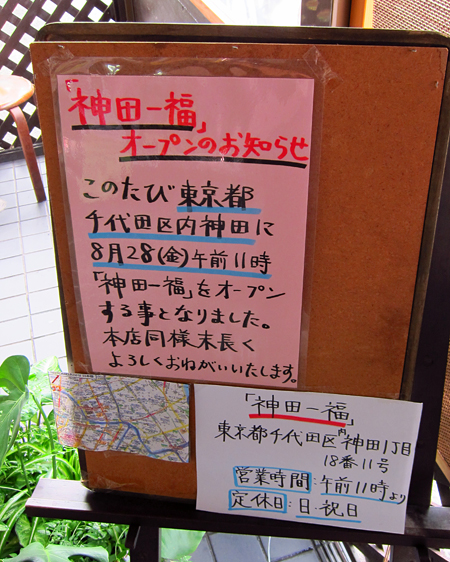 「神田一福」
オープンのお知らせ
このたび東京都
千代田区内神田に
8月28(金)午前11時
「神田一福」をオープン
する事となりました。
本店同様末長く
よろしくおねがいいたします。
「神田一福」
東京都千代田区内神田1丁目
18番11号
営業時間:午前11時より
定休日:日・祝日